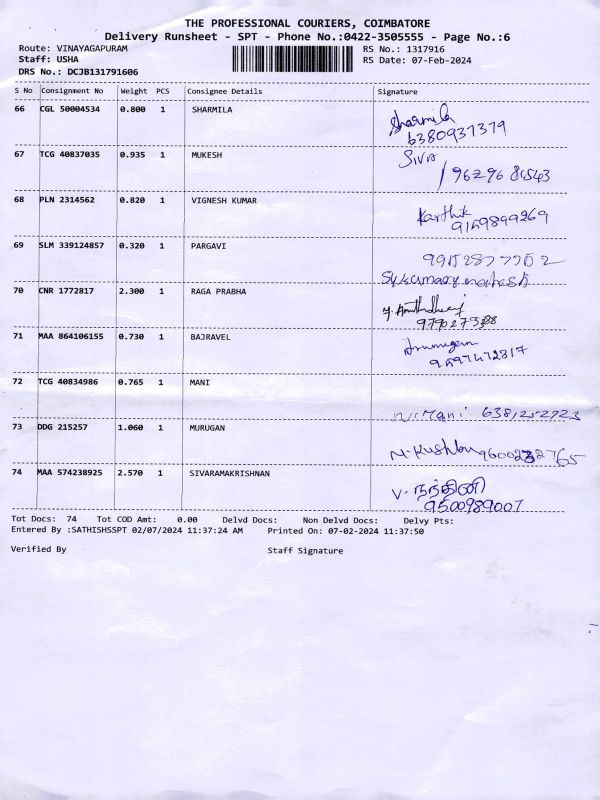 THE PROFESSIONAL COURIERS, COIMBATORE
Delivery Runsheet - SPT - Phone No.:0422-3505555 - Page No.:6
Route: VINAYAGAPURAM RS No.: 1317916
Staff: USHA RS Date: 07-Feb-2024
DRS No.: DCJB131791606
S No Consignment No Weight PCS Consignee Details Signature
66 CGL 50004534 0.800 1 SHARMILA Sharmila
6380937379
67 TCG 40837035 0.935 1 MUKESH Siva
68 PLN 2314562 0.820 1 VIGNESH KUMAR Karthik
69 SLM 339124857 0.320 1 PARGAVI
70 CNR 1772817 2.300 1 RAGA PRABHA
71 MAA 864106155 0.730 1 BAJRAVEL
72 TCG 40834986 0.765 1 MANI Mani
73 DDG 215257 1.060 1 MURUGAN
74 MAA 574238925 2.570 1 SIVARAMAKRISHNAN V. நந்தினி
9500989007
Tot Docs: 74 Tot COD Amt: 0.00 Delvd Docs: Non Delvd Docs: Delvy Pts:
Entered By :SATHISHSSPT 02/07/2024 11:37:24 AM Printed On: 07-02-2024 11:37:50
Verified By Staff Signature